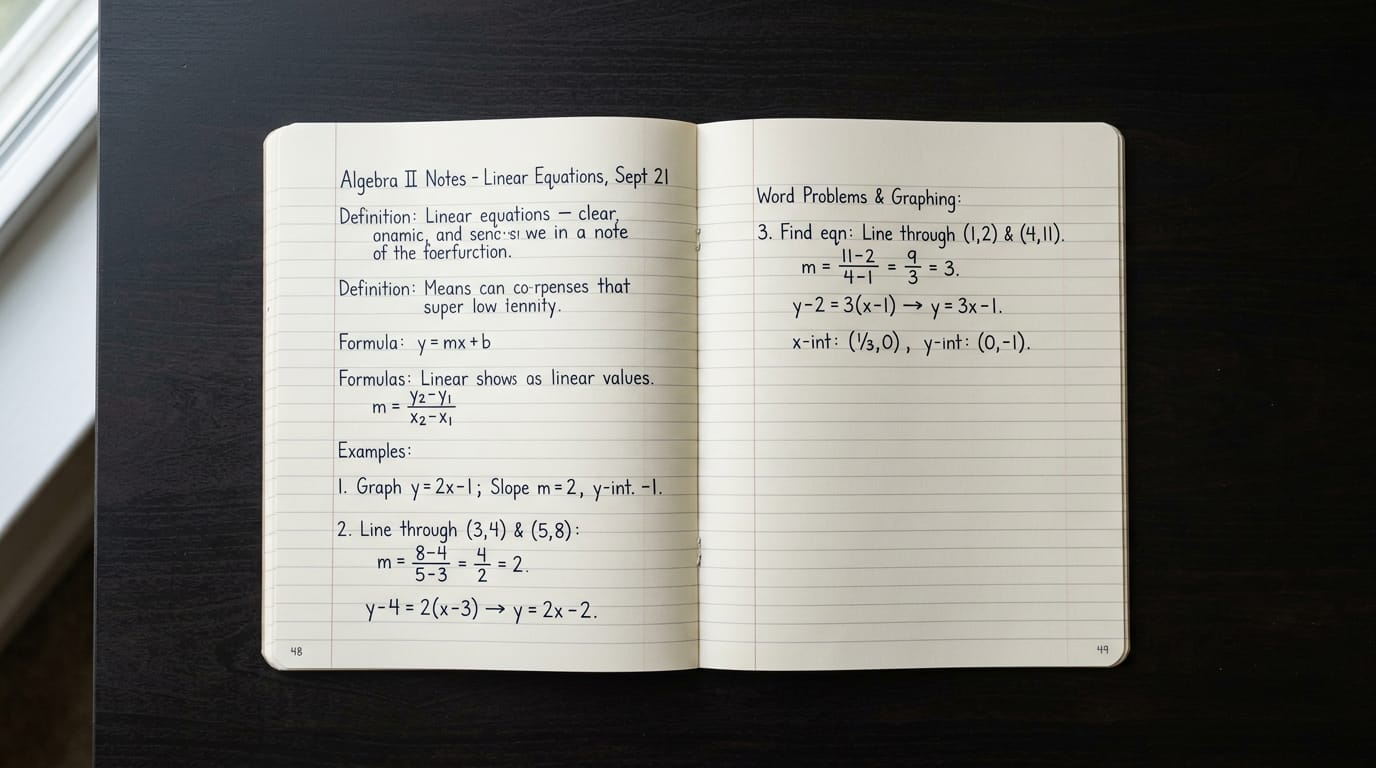 Algebra II Notes - Linear Equations, Sept 21
Definition: Linear equations — clear,
onamic, and we in a note
of the foerfurction.
Definition: Means can co-rpenses that
super low iennity.
Formula: y = mx + b
Formulas: Linear shows as linear values.
m = (y₂-y₁)/(x₂-x₁)
Examples:
1. Graph y = 2x-1; Slope m = 2, y-int. -1.
2. Line through (3,4) & (5,8):
m = (8-4)/(5-3) = 4/2 = 2.
y-4 = 2(x-3) → y = 2x-2.
48
Word Problems & Graphing:
3. Find eqn: Line through (1,2) & (4,11).
m = (11-2)/(4-1) = 9/3 = 3.
y-2 = 3(x-1) → y = 3x-1.
x-int: (⅓,0), y-int: (0,-1).
49